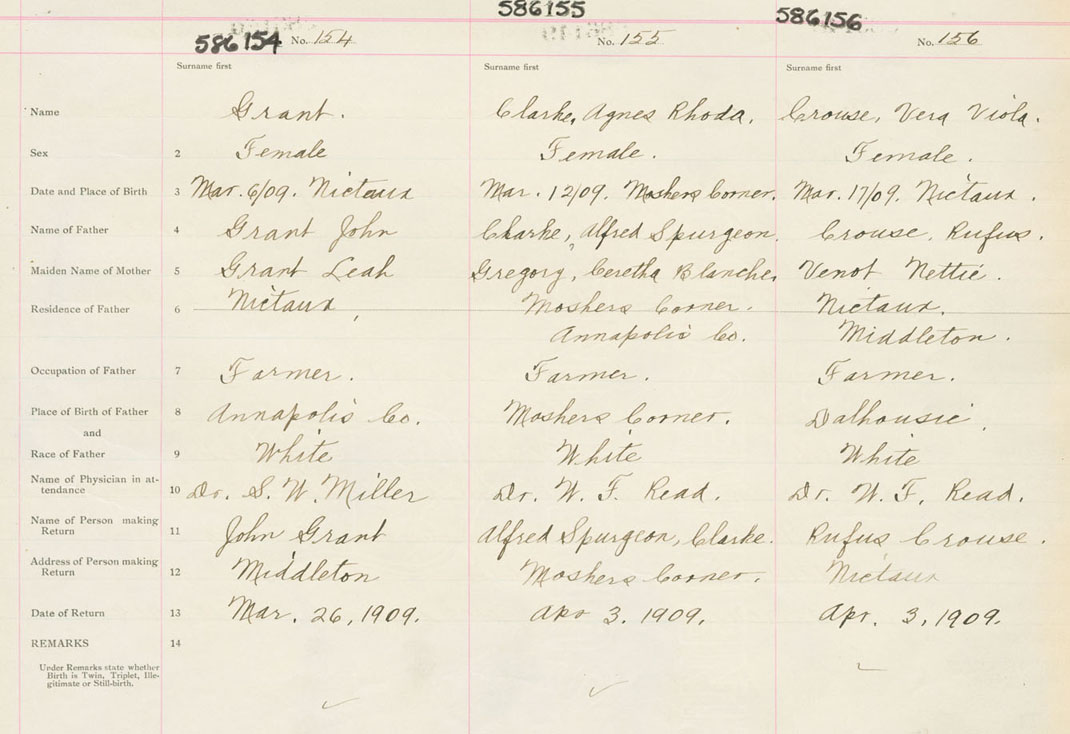 586154 586155 586156
No. 154 No. 155 No. 156
Surname first Surname first Surname first
Name Grant. Clarke, Agnes Rhoda. Crouse, Vera Viola.
Sex 2 Female Female. Female.
Date and Place of Birth 3 Mar. 6/09. Nictaux Mar. 12/09. Moshers Corner. Mar. 17/09. Nictaux.
Name of Father 4 Grant John Clarke, Alfred Spurgeon. Crouse, Rufus.
Maiden Name of Mother 5 Grant Leah Gregory, Ceretha Blanche, Venot Nettie.
Residence of Father 6 Nictaux, Moshers Corner. Nictaux.
Annapolis Co. Middleton.
Occupation of Father 7 Farmer. Farmer. Farmer.
Place of Birth of Father 8 Annapolis Co. Moshers Corner. Dalhousie.
and
Race of Father 9 White White White
Name of Physician in at-
tendance 10 Dr. S. W. Miller Dr. W. F. Read. Dr. W. F. Read.
Name of Person making
Return 11 John Grant Alfred Spurgeon, Clarke. Rufus Crouse.
Address of Person making
Return 12 Middleton Moshers Corner. Nictaux
Date of Return 13 Mar. 26, 1909. Apr 3. 1909. Apr. 3, 1909.
REMARKS 14
Under Remarks state whether
Birth is Twin, Triplet, Ille-
gitimate or Still-birth.